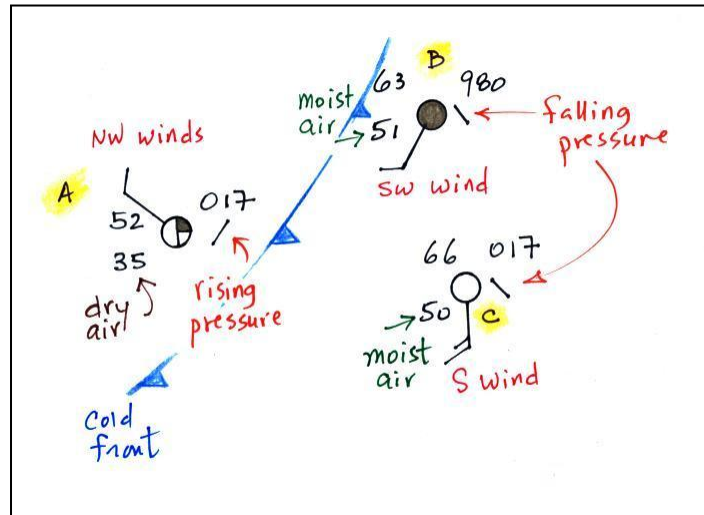 NW winds
A
52
017
35
dry
air
rising
pressure
cold
front
moist
air
63
B
980
51
SW wind
falling
pressure
66
017
50
C
moist
air
S wind